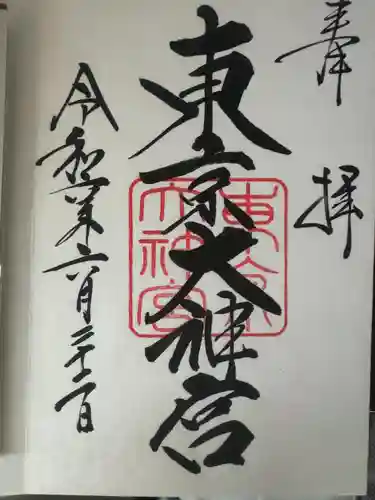 奉拝
東京大神宮
東京大神宮
令和六年六月二十二日